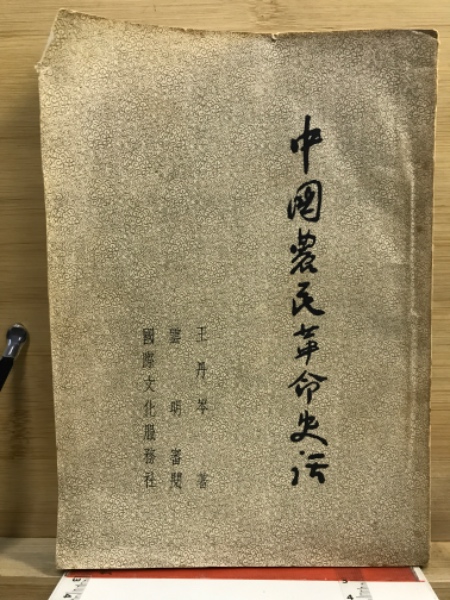 中國農民革命史話
王丹岑 著
明 審閱
國際文化服務社